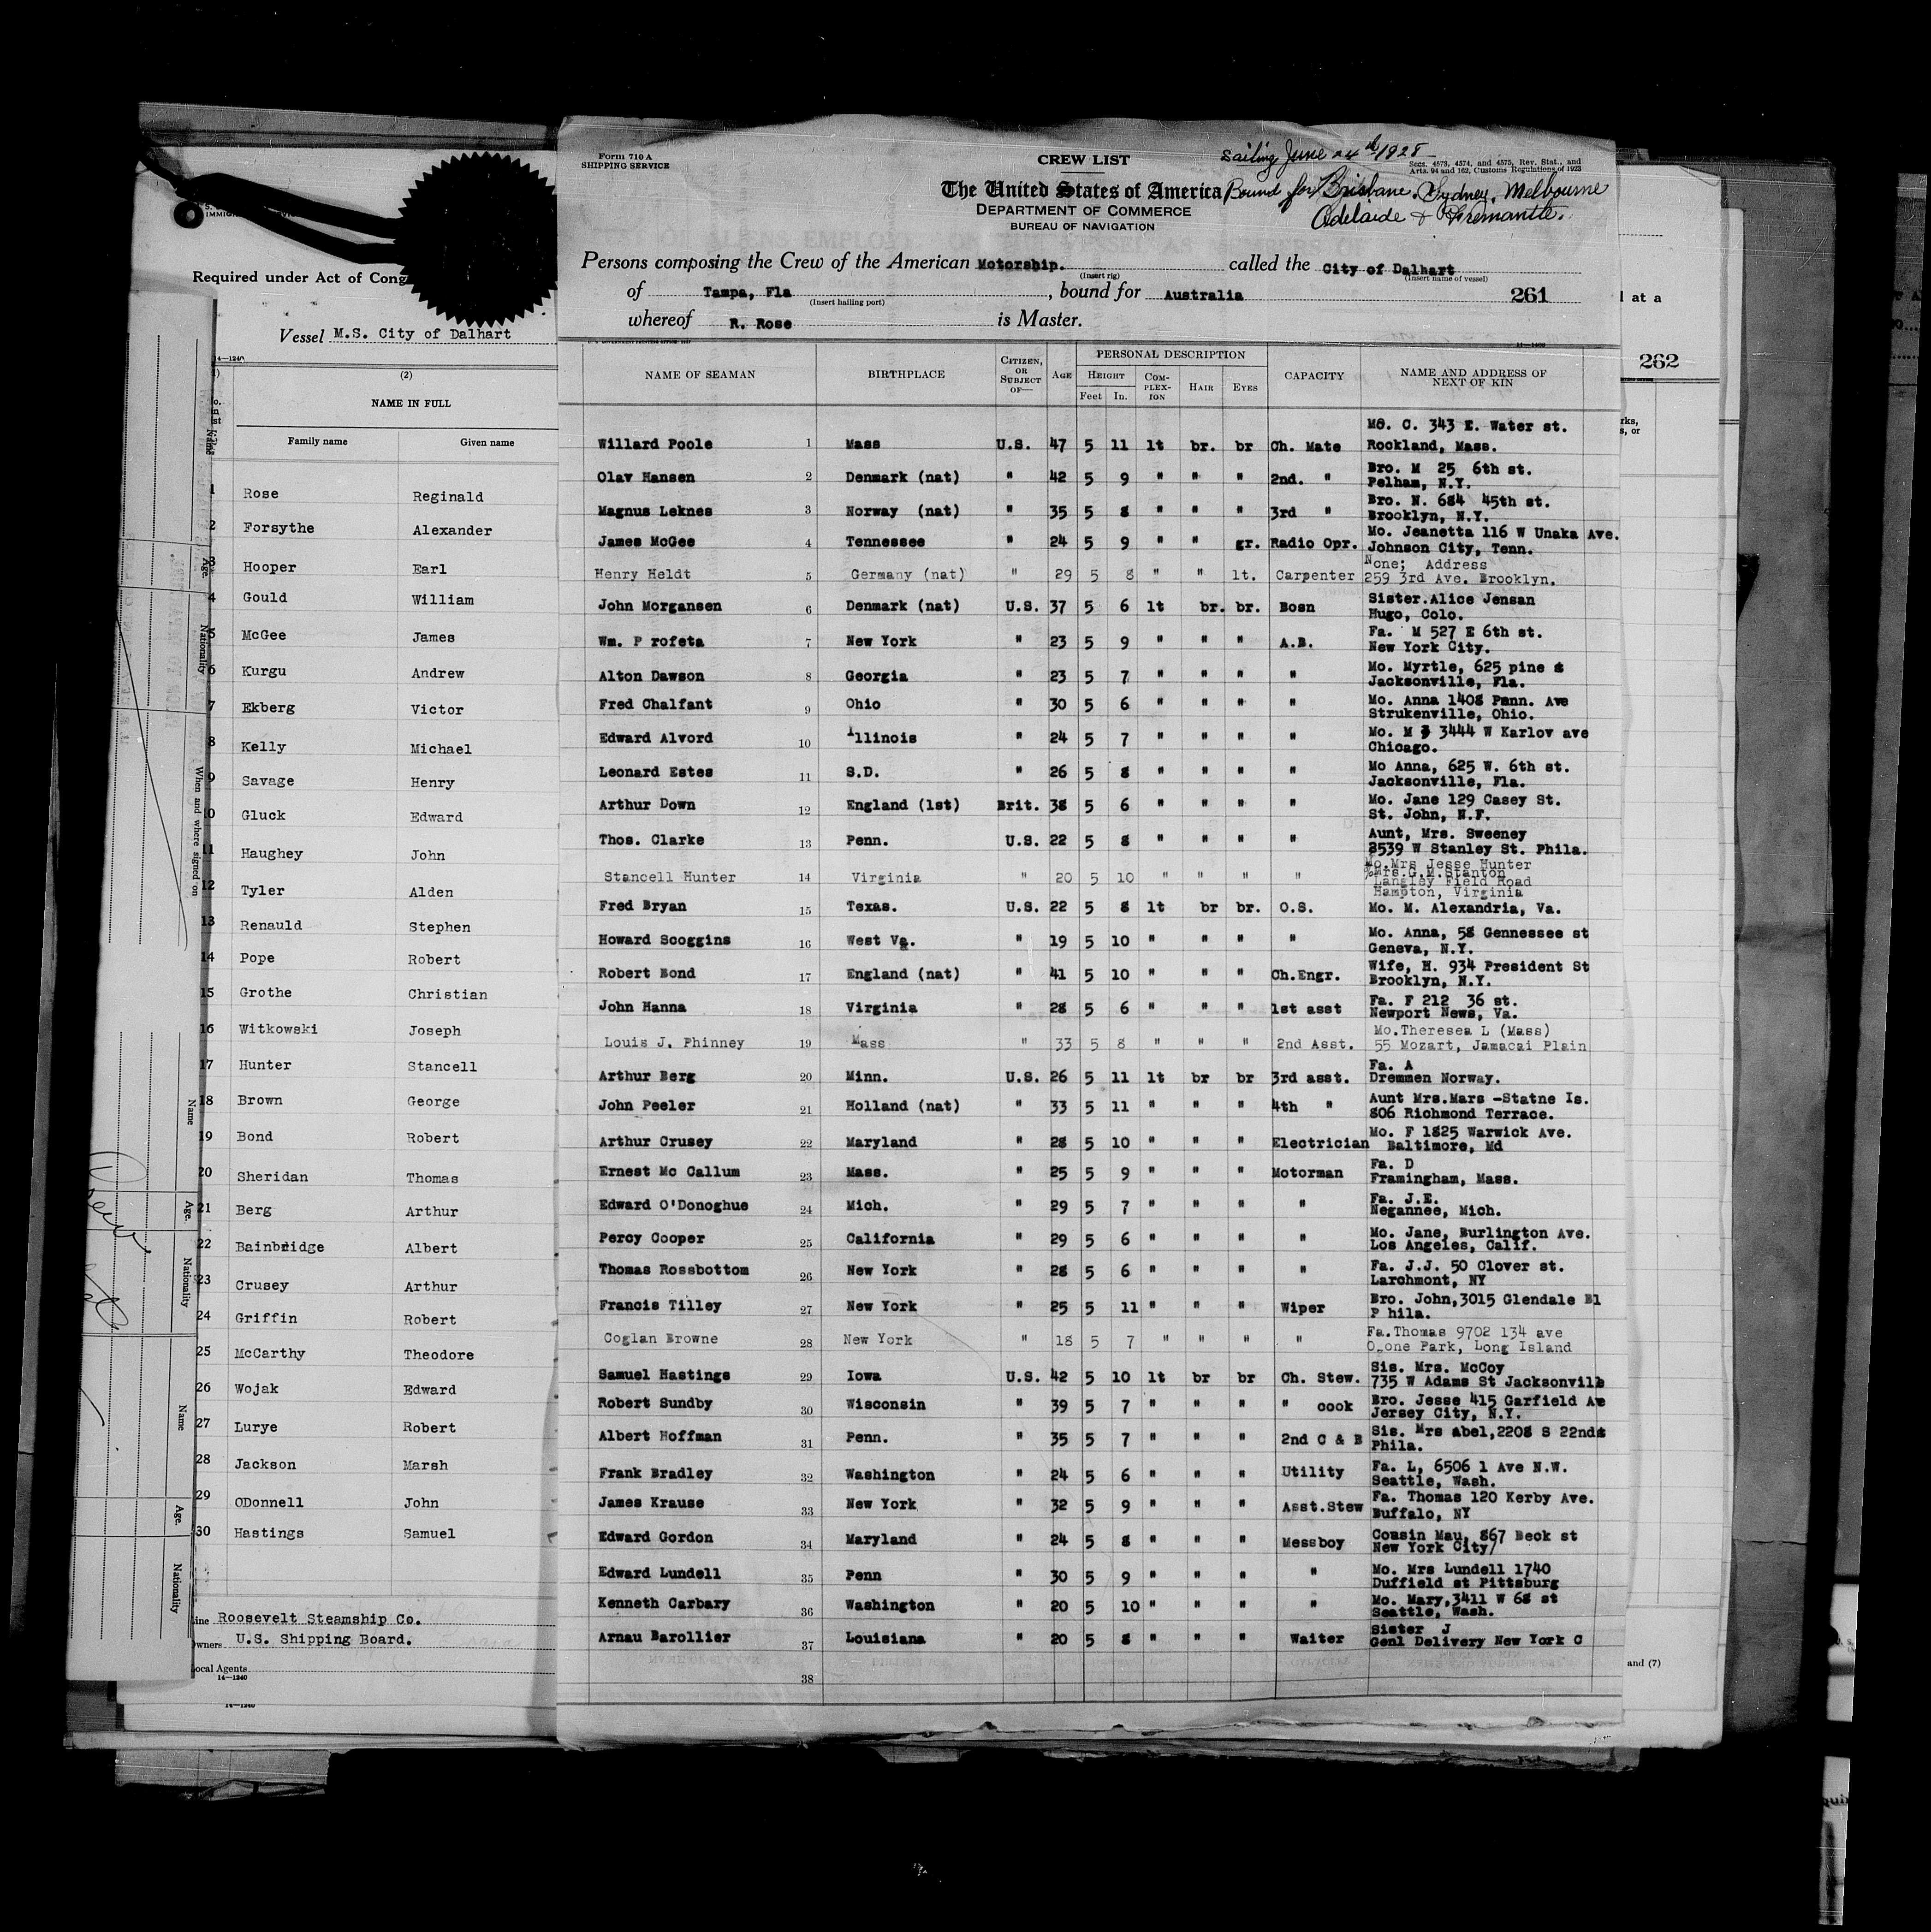 Form 710 A
SHIPPING SERVICE
CREW LIST
Sailing June 24th 1928
Secs. 4573, 4574, and 4575, Rev. Stat., and
Arts. 94 and 162, Customs Regulations of 1923
The United States of America
Bound for Brisbane. Sydney. Melbourne
DEPARTMENT OF COMMERCE
Adelaide & Fremantle.
BUREAU OF NAVIGATION
Persons composing the Crew of the American Motorship. called the City of Dalhart
(Insert rig) (Insert name of vessel)
of Tampa, Fla , bound for Australia 261
(Insert hailing port)
whereof R. Rose is Master.
NAME OF SEAMAN BIRTHPLACE CITIZEN, OR SUBJECT OF— AGE PERSONAL DESCRIPTION CAPACITY NAME AND ADDRESS OF NEXT OF KIN
HEIGHT COM-PLEX-ION HAIR EYES
Feet In.
343 E. Water st.
Willard Poole 1 Mass U.S. 47 5 11 lt br. br Ch. Mate Rockland, Mass.
Bro. M 25 6th st.
Olav Hansen 2 Denmark (nat) " 42 5 9 " " " 2nd. " Pelham, N.Y.
Bro. N. 684 45th st.
Magnus Leknes 3 Norway (nat) " 35 5 8 " " " 3rd " Brooklyn, N.Y.
Mo. Jeanetta 116 W Unaka Ave.
James McGee 4 Tennessee " 24 5 9 " " gr. Radio Opr. Johnson City, Tenn.
None; Address
Henry Heldt 5 Germany (nat) " 29 5 8 " " lt. Carpenter 259 3rd Ave. Brooklyn.
Sister.Alice Jensan
John Morgansen 6 Denmark (nat) U.S. 37 5 6 lt br. br. Bosn Hugo, Colo.
Fa. M 527 E 6th st.
Wm. P rofeta 7 New York " 23 5 9 " " " A.B. New York City.
Mo. Myrtle, 625 pine s
Alton Dawson 8 Georgia " 23 5 7 " " " " Jacksonville, Fla.
Mo. Anna 1408 Penn. Ave
Fred Chalfant 9 Ohio " 30 5 6 " " " " Strukenville, Ohio.
Mo. M 3444 W Karlov ave
Edward Alvord 10 Illinois " 24 5 7 " " " " Chicago.
Mo Anna, 625 W. 6th st.
Leonard Estes 11 S.D. " 26 5 8 " " " " Jacksonville, Fla.
Mo. Jane 129 Casey St.
Arthur Down 12 England (1st) Brit. 38 5 6 " " " " St. John, N.F.
Aunt, Mrs. Sweeney
Thos. Clarke 13 Penn. U.S. 22 5 8 " " " " 2539 W Stanley St. Phila.
Mo.Mrs Jesse Hunter
%Mrs.G.M.Stanton
Stancell Hunter 14 Virginia " 20 5 10 " " " " Langley Field Road
Hampton, Virginia
Fred Bryan 15 Texas. U.S. 22 5 8 lt br br. O.S. Mo. M. Alexandria, Va.
Mo. Anna, 58 Gennessee st
Howard Scoggins 16 West Va. " 19 5 10 " " " " Geneva, N.Y.
Wife, H. 934 President St
Robert Bond 17 England (nat) " 41 5 10 " " " Ch.Engr. Brooklyn, N.Y.
Fa. F 212 36 st.
John Hanna 18 Virginia " 28 5 6 " " " 1st asst Newport News, Va.
Mo.Theresea L (Mass)
Louis J. Phinney 19 Mass " 33 5 8 " " " 2nd Asst. 55 Mozart, Jamacai Plain
Fa. A
Arthur Berg 20 Minn. U.S. 26 5 11 lt br br 3rd asst. Dremmen Norway.
Aunt Mrs.Mars -Statne Is.
John Peeler 21 Holland (nat) " 33 5 11 " " " 4th " 806 Richmond Terrace.
Mo. F 1825 Warwick Ave.
Arthur Crusey 22 Maryland " 28 5 10 " " " Electrician Baltimore, Md
Fa. D
Ernest Mc Callum 23 Mass. " 25 5 9 " " " Motorman Framingham, Mass.
Fa. J.E.
Edward O'Donoghue 24 Mich. " 29 5 7 " " " " Negannee, Mich.
Mo. Jane, Burlington Ave.
Percy Cooper 25 California " 29 5 6 " " " " Los Angeles, Calif.
Fa. J.J. 50 Clover st.
Thomas Rossbottom 26 New York " 28 5 6 " " " " Larchmont, NY
Bro. John,3015 Glendale Bl
Francis Tilley 27 New York " 25 5 11 " " " Wiper P hila.
Fa.Thomas 9702 134 ave
Coglan Browne 28 New York " 18 5 7 " " " " O_one Park, Long Island
Sis. Mrs. McCoy
Samuel Hastings 29 Iowa U.S. 42 5 10 lt br br Ch. Stew. 735 W Adams St Jacksonvill
Bro. Jesse 415 Garfield Ae
Robert Sundby 30 Wisconsin " 39 5 7 " " " " cook Jersey City, N.Y.
Sis. Mrs Abel,2208 S 22nd
Albert Hoffman 31 Penn. " 35 5 7 " " " 2nd C & B Phila.
Fa. L, 6506 1 Ave N.W.
Frank Bradley 32 Washington " 24 5 6 " " " Utility Seattle, Wash.
Fa. Thomas 120 Kerby Ave.
James Krause 33 New York " 32 5 9 " " " Asst.Stew Buffalo, NY
Cousin May, 867 Beck st
Edward Gordon 34 Maryland " 24 5 8 " " " Messboy New York City/
Mo. Mrs Lundell 1740
Edward Lundell 35 Penn " 30 5 9 " " " " Duffield st Pittsburg
Mo. Mary,3411 W 68 st
Kenneth Carbary 36 Washington " 20 5 10 " " " " Seattle, Wash.
Sister J
Arnau Barollier 37 Louisiana " 20 5 8 " " " Waiter Genl Delivery New York C
38
Required under Act of Cong
Vessel M.S. City of Dalhart
14—1240
(2)
NAME IN FULL
Family name Given name
1 Rose Reginald
2 Forsythe Alexander
3 Hooper Earl
4 Gould William
5 McGee James
6 Kurgu Andrew
7 Ekberg Victor
8 Kelly Michael
9 Savage Henry
10 Gluck Edward
11 Haughey John
12 Tyler Alden
13 Renauld Stephen
14 Pope Robert
15 Grothe Christian
16 Witkowski Joseph
17 Hunter Stancell
18 Brown George
19 Bond Robert
20 Sheridan Thomas
21 Berg Arthur
22 Bainbridge Albert
23 Crusey Arthur
24 Griffin Robert
25 McCarthy Theodore
26 Wojak Edward
27 Lurye Robert
28 Jackson Marsh
29 ODonnell John
30 Hastings Samuel
Line Roosevelt Steamship Co.
Owners U.S. Shipping Board.
Local Agents
14—1240
14—1240
Name
Age.
Nationality
When and where signed on
Name
Age.
Nationality
Name
Age.
Nationality
at a
262
rks,
s, or
and (7)